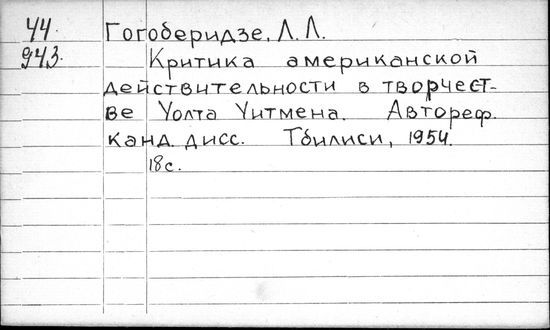 44. Гогоберидзе, Л. Л.
943. Критика американской
действительности в творчест-
ве Уолта Уитмена. Автореф.
канд. дисс. Тбилиси, 1954.
18 с.